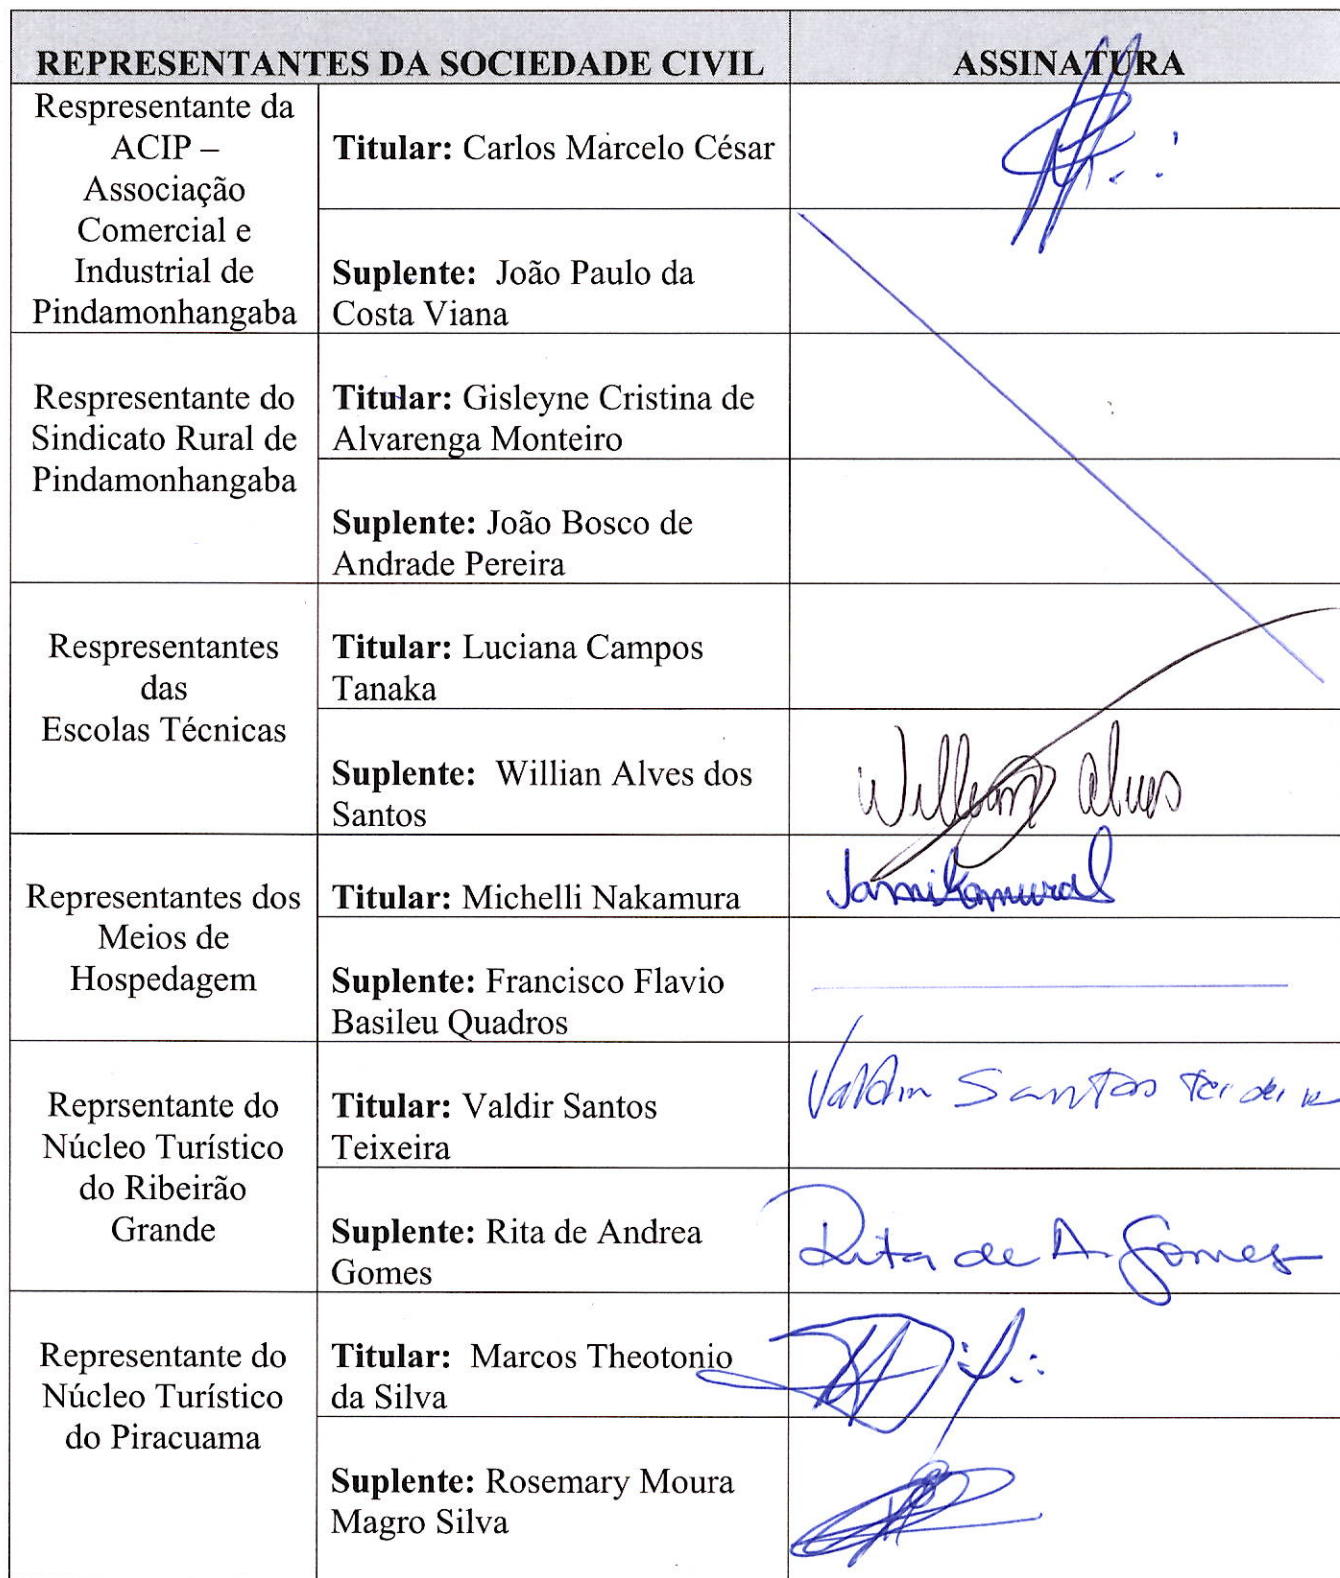 REPRESENTANTES DA SOCIEDADE CIVIL
ASSINATURA
Respresentante da
ACIP –
Associação
Comercial e
Industrial de
Pindamonhangaba
Titular: Carlos Marcelo César
Suplente: João Paulo da
Costa Viana
Respresentante do
Sindicato Rural de
Pindamonhangaba
Titular: Gisleyne Cristina de
Alvarenga Monteiro
Suplente: João Bosco de
Andrade Pereira
Respresentantes
das
Escolas Técnicas
Titular: Luciana Campos
Tanaka
Suplente: Willian Alves dos
Santos
Willian Alves
Representantes dos
Meios de
Hospedagem
Titular: Michelli Nakamura
Suplente: Francisco Flavio
Basileu Quadros
Reprsentante do
Núcleo Turístico
do Ribeirão
Grande
Titular: Valdir Santos
Teixeira
Valdir Santos Teixeira
Suplente: Rita de Andrea
Gomes
Rita de A. Gomes
Representante do
Núcleo Turístico
do Piracuama
Titular: Marcos Theotonio
da Silva
Suplente: Rosemary Moura
Magro Silva